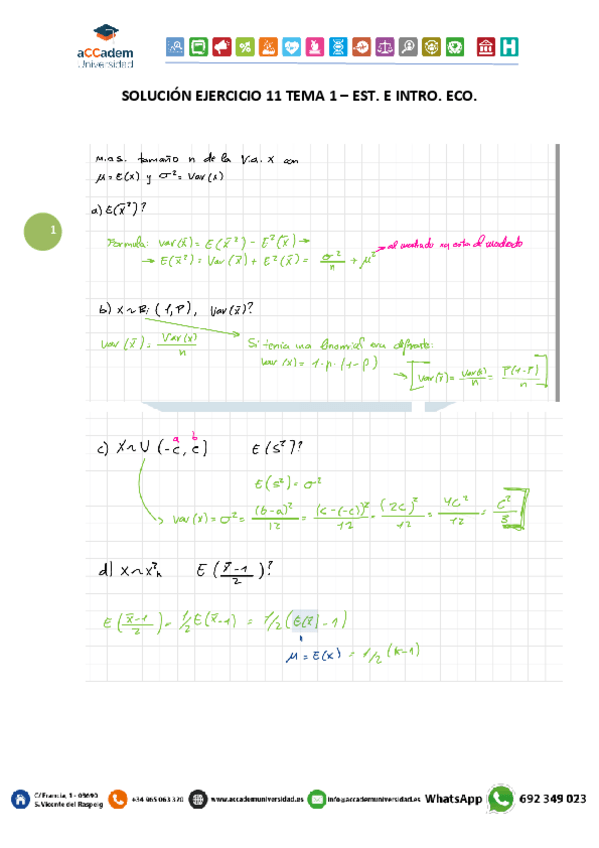 aCCadem
Universidad
SOLUCIÓN EJERCICIO 11 TEMA 1 – EST. E INTRO. ECO.
1
m.a.s. tamaño n de la V.a. X con
μ = E(x) y σ² = Var(x)
a) E(x̄²)?
Formula: Var(x̄) = E(x̄²) - E²(x̄) →
→ E(x̄²) = Var(x̄) + E²(x̄) = σ²/n + μ²
al cuadrado
b) X ~ Bi (1, P), Var(x̄)?
Var(x̄) = Var(x)/n
Si tenía una binomial
Var(x) = 1·p·(1-p)
→ [Var(x̄) = Var(x)/n = P(1-P)/n]
c) X ~ U (-c, c) E(s²)?
a b
E(s²) = σ²
Var(x) = σ² = (b-a)²/12 = (c-(-c))²/12 = (2c)²/12 = 4c²/12 = c²/3
d) X ~ x²ₖ E((x̄-1)/2)?
E((x̄-1)/2) = 1/2 E(x̄-1) = 1/2 (E(x̄) - 1)
μ = E(x) = 1/2 (k-1)
C/ Francia, 1 - 03690
S. Vicente del Raspeig
+34 965 063 320
www.accademuniversidad.es
info@accademuniversidad.es
WhatsApp
692 349 023